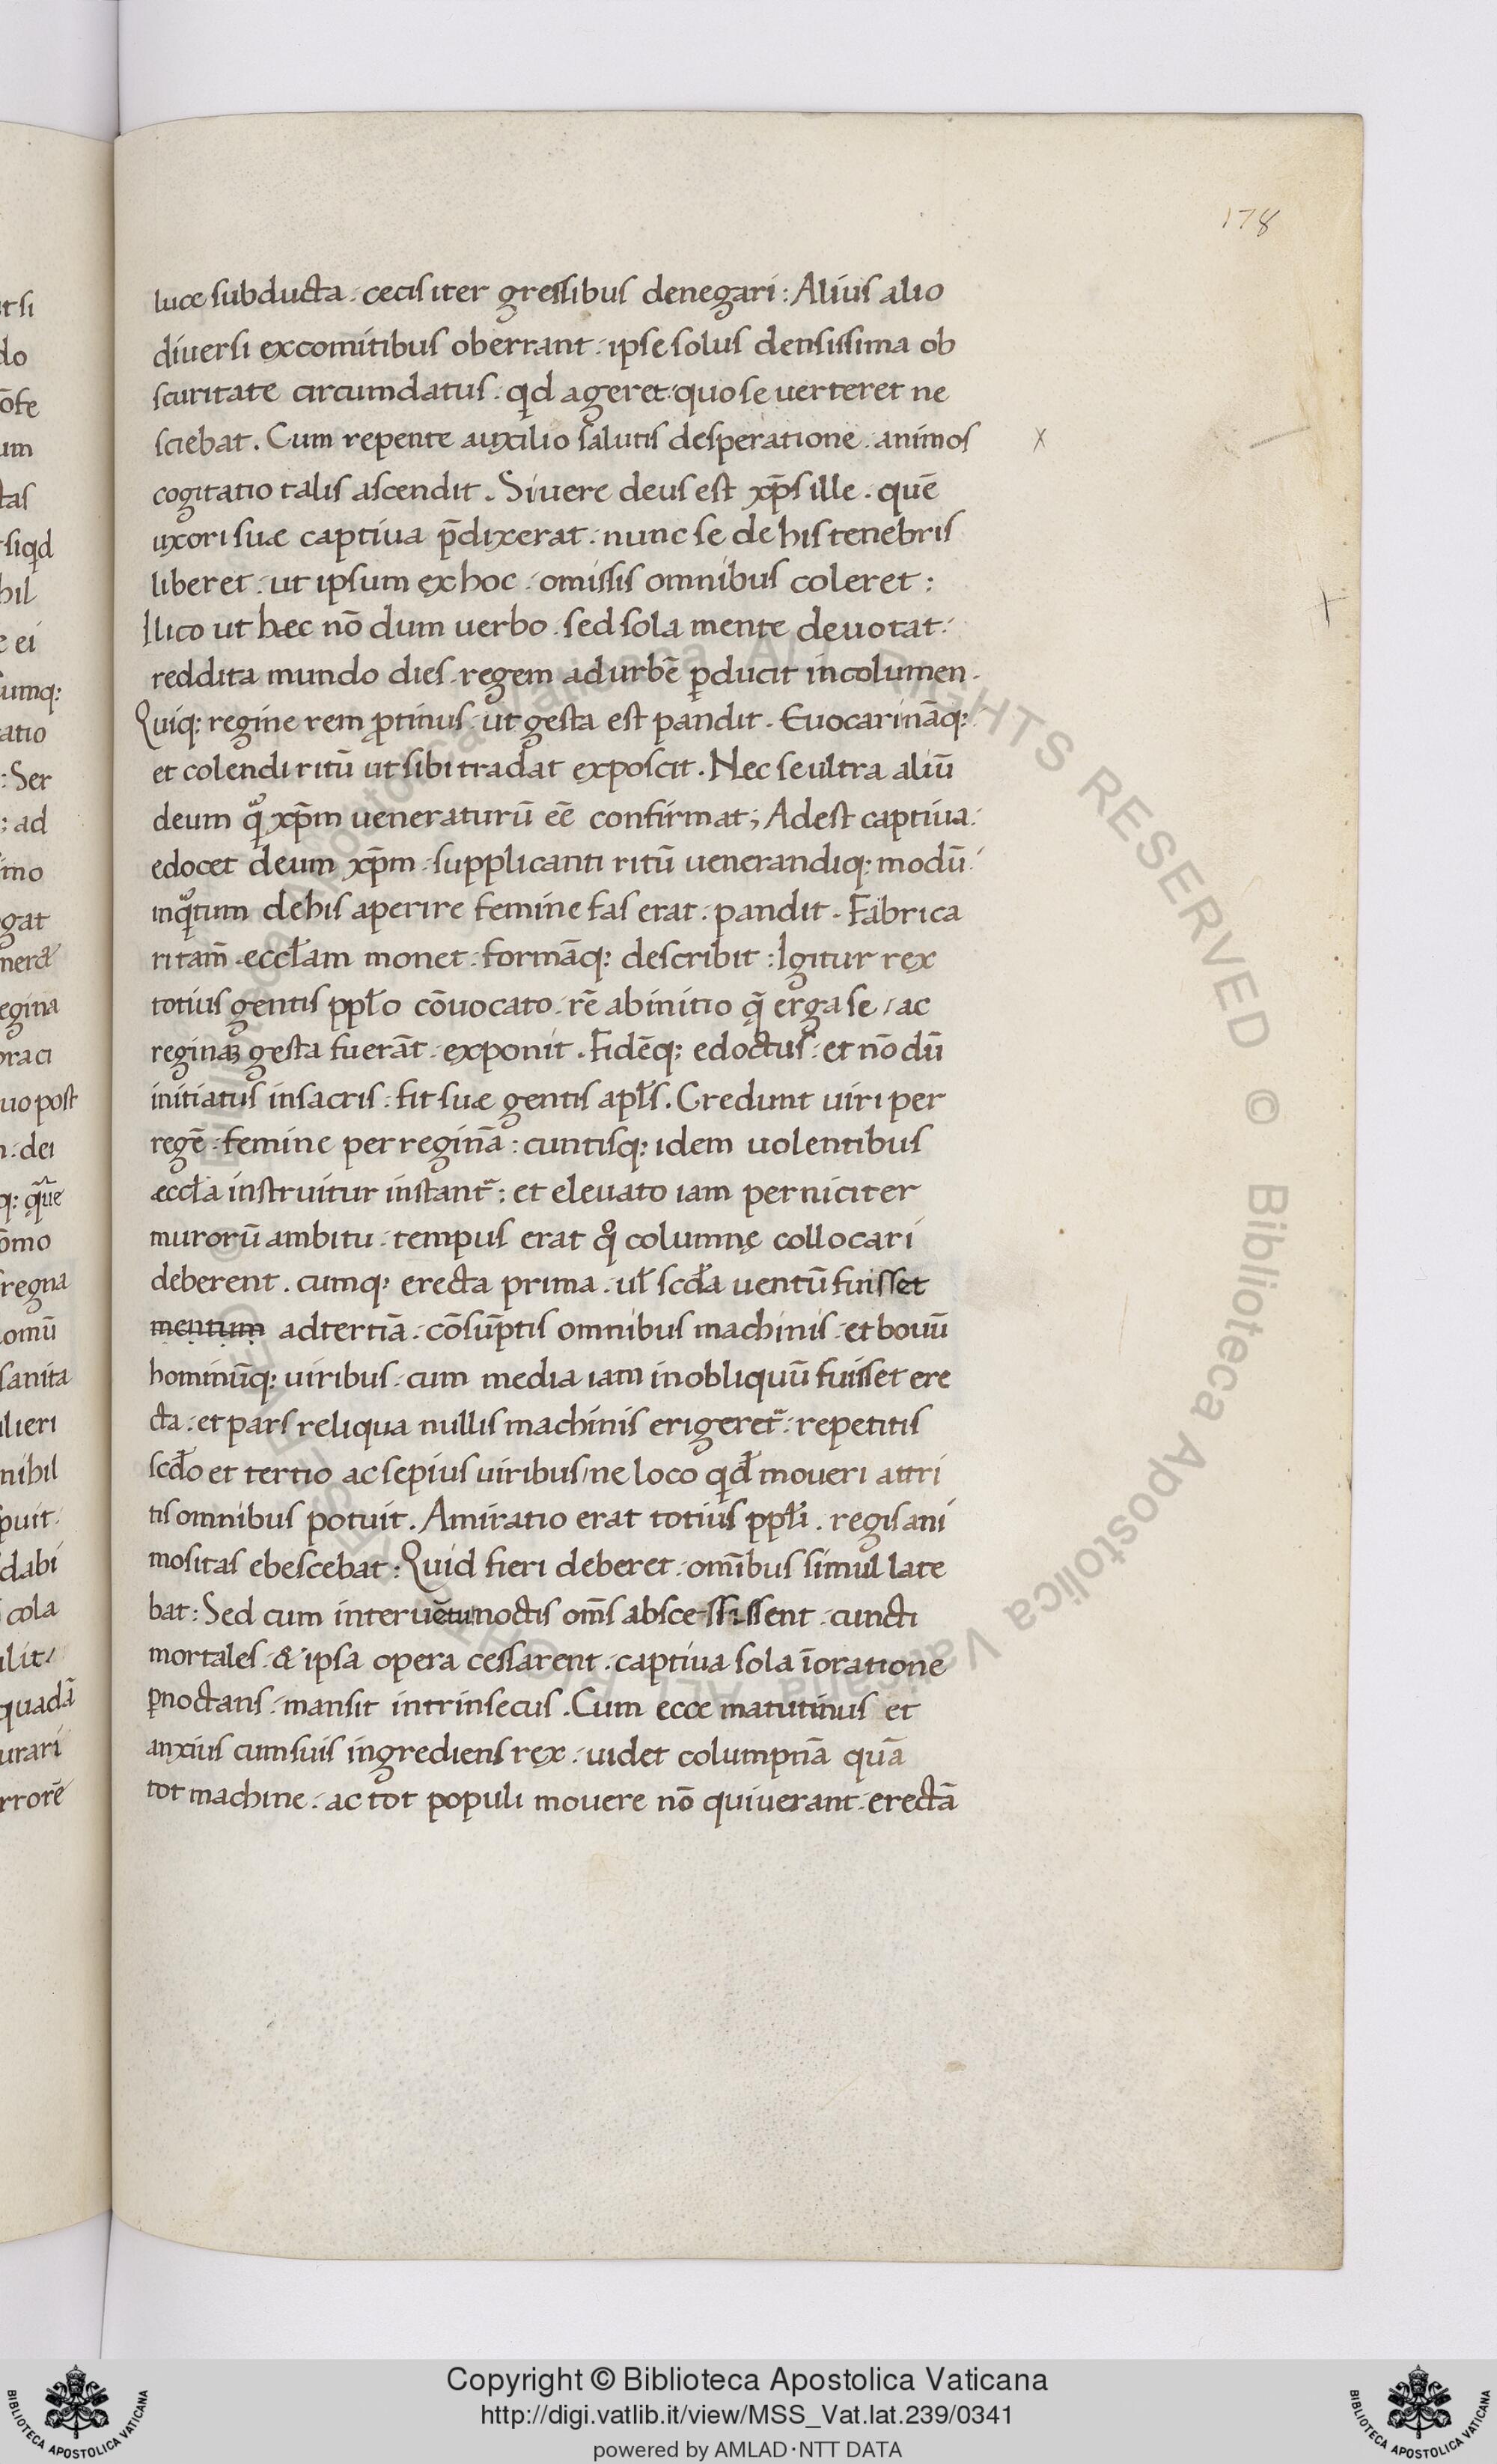 178
luce subducta. cecis iter gressibus denegari: Alius alio
diuersi ex comitibus oberrant. ipse solus densissima ob
scuritate circumdatus. qd ageret. quo se uerteret ne
sciebat. Cum repente auxilio salutis desperatione. animos x
cogitatio talis ascendit. Si uere deus est xp̄s ille. quē
uxori suæ captiua p̄dixerat. nunc se de his tenebris
liberet. ut ipsum ex hoc. omissis omnibus coleret:
Ilico ut hæc nō dum uerbo. sed sola mente deuotat.
reddita mundo dies. regem ad urbē ꝑducit incolumen.
Quiq: regine rem ꝓtinus. ut gesta est pandit. Euocari nāq:
et colendi ritū ut sibi tradat exposcit. Nec se ultra aliū
deum qͣ xp̄m ueneraturū eē confirmat; Adest captiua.
edocet deum xp̄m. supplicanti ritū uenerandiq: modū.
inqͣtum de his aperire femine fas erat. pandit. Fabrica
ri tam̄ eccłam monet. formāq: describit: Igitur rex
totius gentis ppło cōuocato. rē ab initio q̄ erga se, ac
reginaꝫ gesta fuerāt. exponit. Fidēq: edoctus. et nō dū
initiatus in sacris. fit suæ gentis apłs. Credunt uiri per
regē. femine per reginā: cuntisq: idem uolentibus
æccła instruitur instant̄: et eleuato iam perniciter
murorū ambitu. tempus erat qͦ columnę collocari
deberent. cumq: erecta prima. uł scđa uentū fuisset
mentum ad tertiā. cōsūptis omnibus machinis. et bouū
hominūq: uiribus. cum media iam in obliquū fuisset ere
cta. et pars reliqua nullis machinis erigeret̄. repetitis
scđo et tertio ac sepius uiribus, ne loco qđ moueri attri
tis omnibus potuit. Amiratio erat totius ppłi. regis ani
mositas ebescebat: Quid fieri deberet. om̄ibus simul late
bat: Sed cum interuētu noctis om̄s abscessissent. cuncti
mortales. & ipsa opera cessarent. captiua sola ī oratione
ꝑnoctans. mansit intrinsecus. Cum ecce matutinus et
anxius cum suis ingrediens rex. uidet columpnā quā
tot machine. ac tot populi mouere nō quiuerant. erectā
Copyright © Biblioteca Apostolica Vaticana
http://digi.vatlib.it/view/MSS_Vat.lat.239/0341
powered by AMLAD·NTT DATA